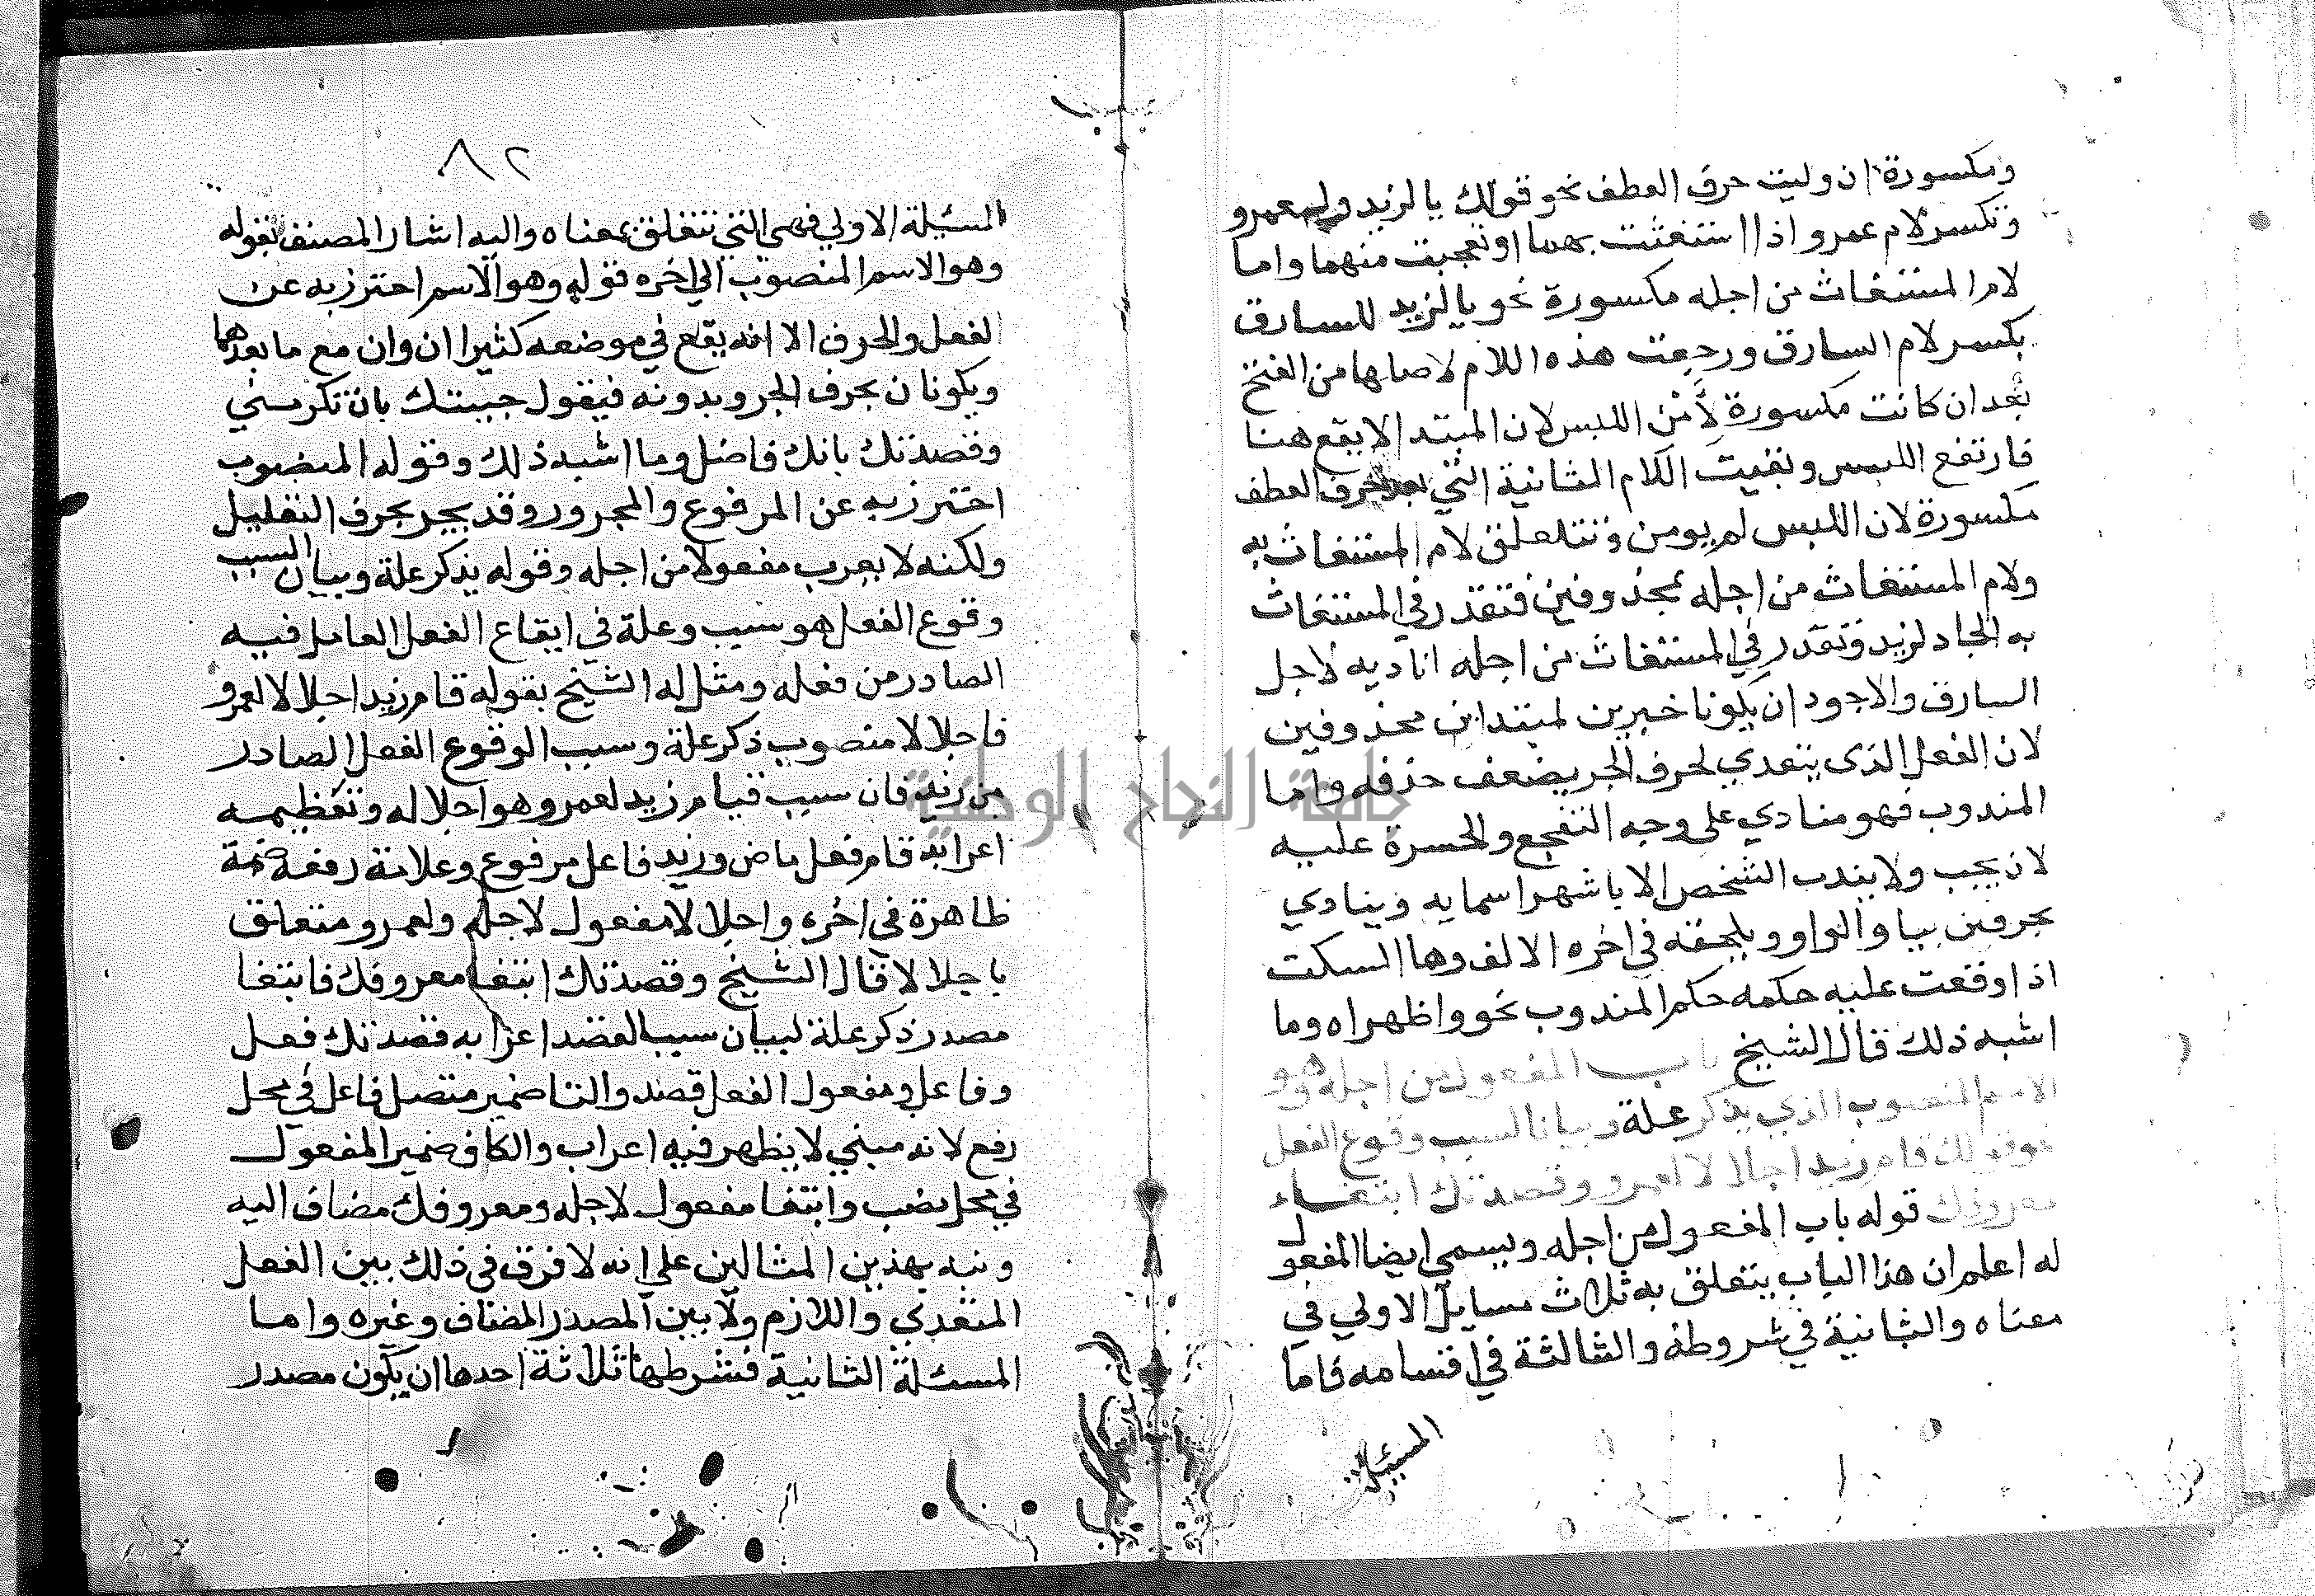 ومكسورة ان وليت حرف العطف نحو قولك يا لزيد ولعمرو
وتكسر لام عمرو اذا استغثت بهما او تعجبت منهما واما
لام المستغاث من اجله مكسورة نحو يا لزيد للسارق
بكسر لام السارق ورجعت هذه اللام لاصلها من الفتح
بعد ان كانت مكسورة لأمن اللبس لان المبتدا لا يقع هنا
فارتفع اللبس وبقيت اللام الثانية التي بعد حرف العطف
مكسورة لان اللبس لم يومن وتتعلق لام المستغاث به
ولام المستغاث من اجله بمحذوفين فتقدر في المستغاث
به الجاد لزيد وتقدر في المستغاث من اجله اناديه لاجل
السارق والاجود ان يكونا خبرين لمبتداين محذوفين
لان الفعل الذى يتعدي لحرف الجر يضعف حذفه واما
المندوب فهو منادي على وجه التفجع والحسرة عليه
لان يجب ولا يندب الشخص الا باشهر اسمايه وينادي
بحرفين بيا والواو ويلحقه في اخره الالف وها السكت
اذا وقعت عليه حكمه حكم المندوب نحو واظهراه وما
اشبه ذلك قال الشيخ باب المفعول من اجله وهو
الاسم المنصوب الذي يذكر علة وبيانا لسبب وقوع الفعل
نحو قولك قام زيد اجلالا لعمرو وقصدتك ابتغاء
معروفك قوله باب المفعول من اجله ويسمي ايضا المفعول
له اعلم ان هذا الباب يتعلق به ثلاث مسايل الاولي في
معناه والثانية في شروطه والثالثة في اقسامه فاما
المسئلة
٨٢
المسئلة الاولي فهي التي تتعلق بمعناه واليه اشار المصنف بقوله
وهو الاسم المنصوب الي اخره قوله وهو الاسم احترز به عن
الفعل والحرف الا انه يقع في موضعه كثيرا ان وان مع ما بعدهما
ويكونان بحرف الجر وبدونه فيقول جيتك بان تكرمني
وقصدتك بانك فاضل وما اشبه ذلك وقوله المنصوب
احترز به عن المرفوع والمجرور وقد يجر بحرف التعليل
ولكنه لا يعرب مفعولا من اجله وقوله يذكر علة وبيان السبب
وقوع الفعل هو سبب وعلة في ايقاع الفعل العامل فيه
الصادر من فعله ومثل له الشيخ بقوله قام زيد اجلالا لعمرو
فاجلالا منصوب ذكر علة وسبب الوقوع الفعل الصادر
من زيد فان سبب قيام زيد لعمرو هو اجلاله وتعظيمه
اعرابه قام فعل ماض وزيد فاعل مرفوع وعلامة رفعه ضمة
ظاهرة في اخره واجلالا مفعول لاجله ولعمرو متعلق
باجلالا قال الشيخ وقصدتك ابتغا معروفك فابتغا
مصدر ذكر علة لبيان سبب القصد اعرابه قصدتك فعل
وفاعل ومفعول الفعل قصد والتا ضمير متصل فاعل في محل
رفع لانه مبني لا يظهر فيه اعراب والكاف ضمير المفعول
في محل نصب وابتغا مفعول لاجله ومعروفك مضاف اليه
ونبه بهذين المثالين علي انه لا فرق في ذلك بين الفعل
المتعدي واللازم ولا بين المصدر المضاف وغيره واما
المسئلة الثانية فشرطها ثلاثة احدها ان يكون مصدر
جامعة النجاح الوطنية